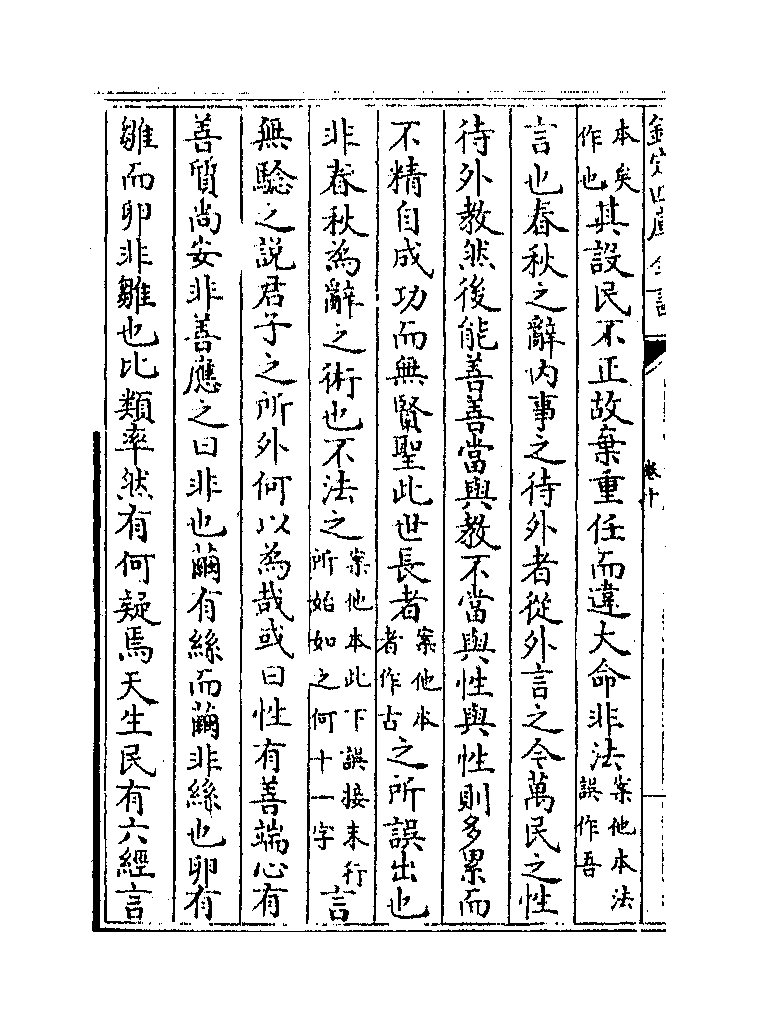 欽定四庫全書
卷十
本矣作也其設民不正故棄重任而違大命非法案他本法誤作吾
言也春秋之辭内事之待外者從外言之今萬民之性
待外教然後能善善當與教不當與性與性則多累而
不精自成功而無賢聖此世長者案他本者作古之所誤出也
非春秋為辭之術也不法之案他本此下誤接末行所始如之何十一字言
無驗之説君子之所外何以為哉或曰性有善端心有
善質尚安非善應之曰非也繭有絲而繭非絲也卵有
雛而卵非雛也比類率然有何疑焉天生民有六經言